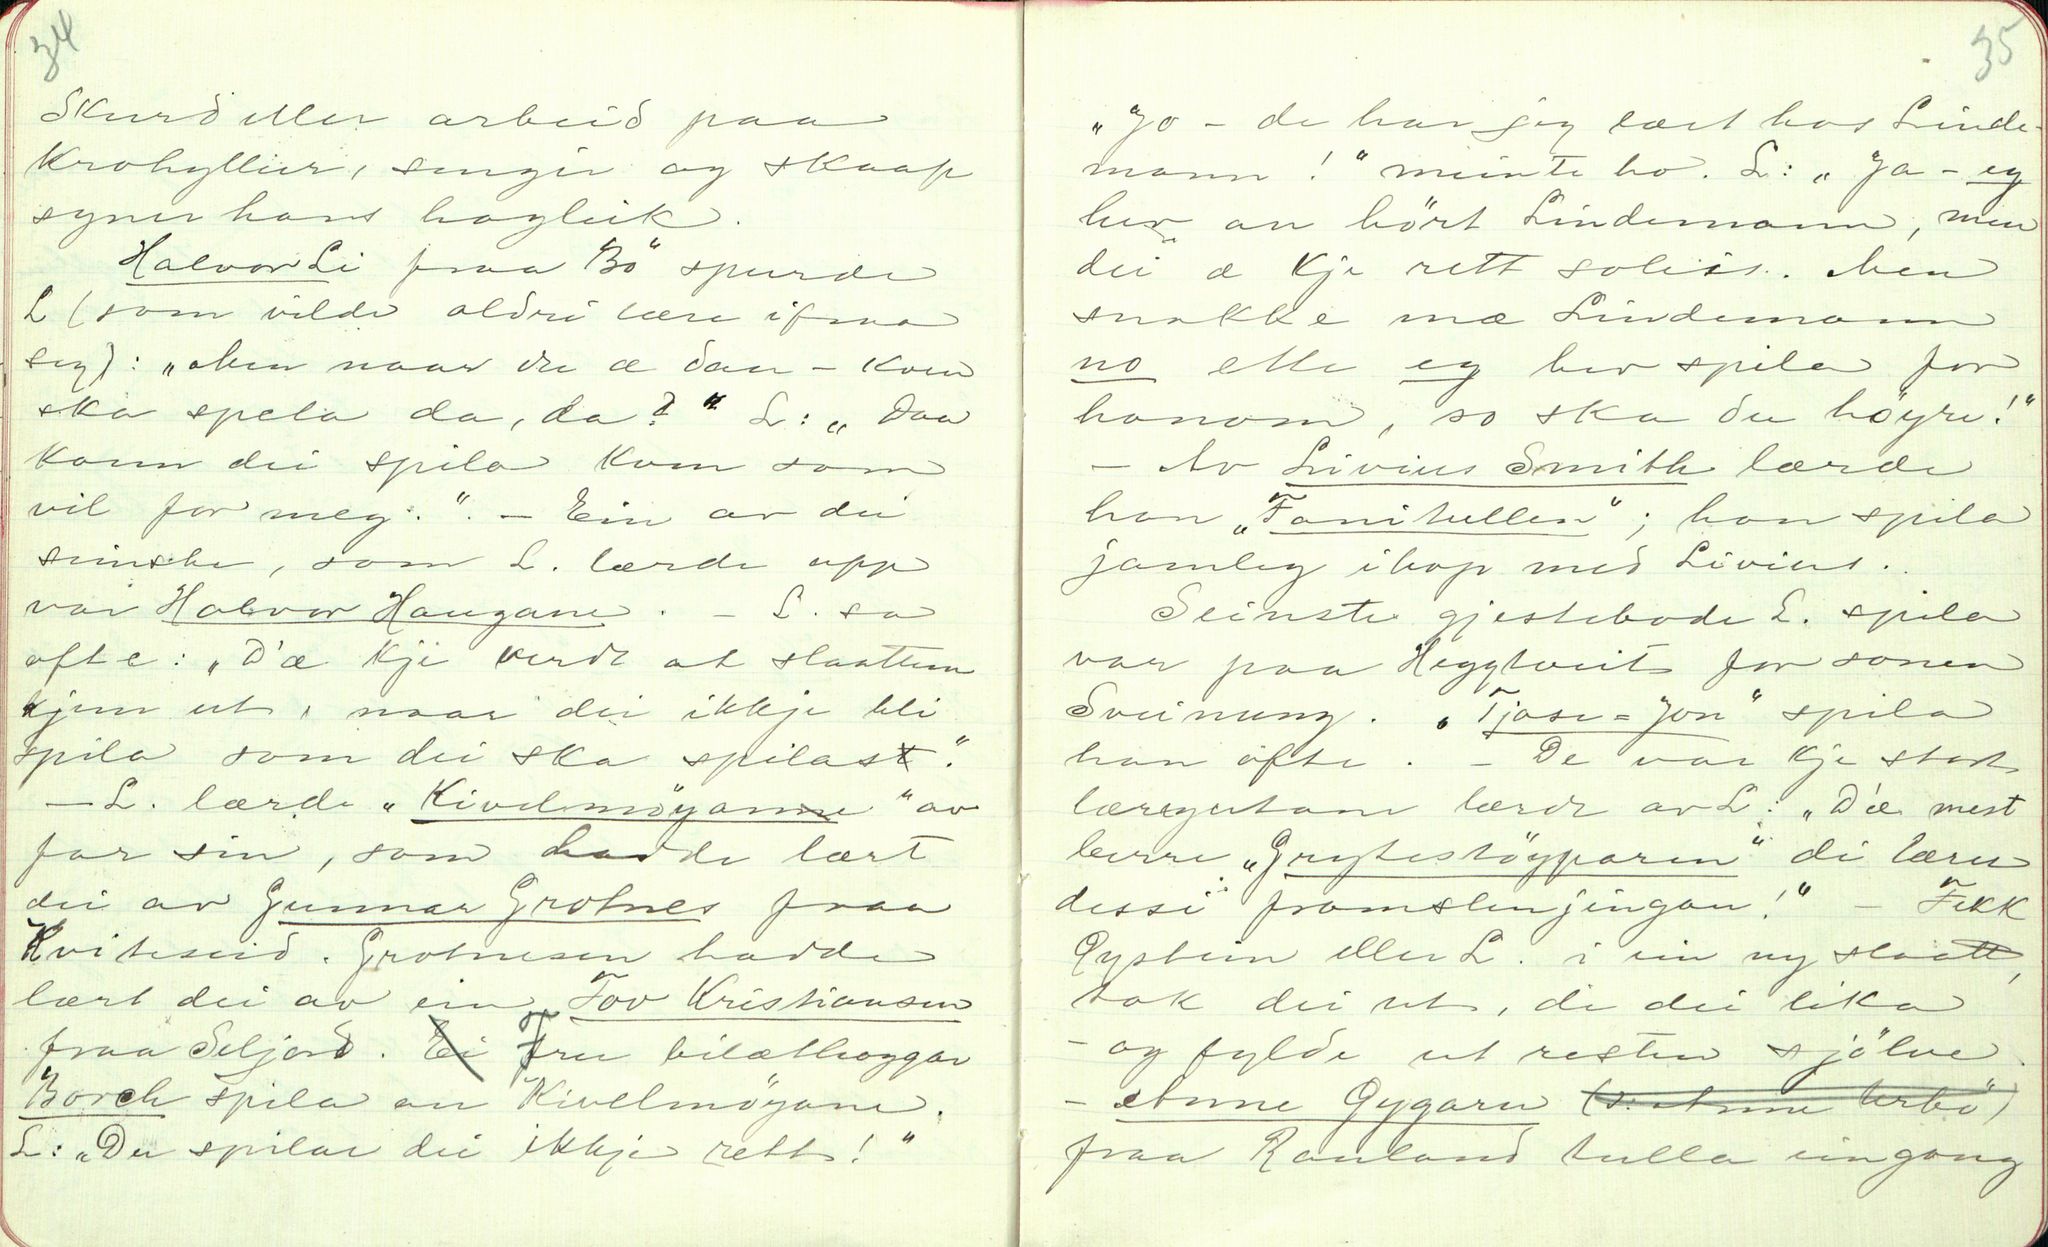 34
Skurd eller arbeid paa
Krohyllur, sengir og skaap
syner hans hagleik.
Halvor Li fraa Bö spurde
L (som vilde aldri lære ifraa
seg): „Men naar du æ dau – kven
ska spela da, da?" L: „Daa
kann dei spila kvem som
vil for meg.". – Ein av dei
seinste, som L. lærde upp
var Halvor Haugane. – L. sa
ofte: „D'æ kje verdt at slaatten
kjem ut, naar dei ikkje bli
spila som dei ska spilast."
– L. lærde „Kivelmöyanne" av
far sin, som hadde lært
dei av Gunnar Grotnes fraa
Kviteseid. Grotnesen hadde
lært dei av ein Tov Kristiansen
fraa Seljord. Ei Fru bilæthoggar
Borch spila an Kivelmöyane.
L: „Du spilar dei ikkje rett!"
35
„Jo – de har jeg lært hos Linde-
mann!" meinte ho. L: „Ja – eg
hev an hört Lindemann, men
dei æ kje rett soleis. Men
snakke mæ Lindemann
no ette eg hev spila for
honom, so ska du höyre!"
– Av Livius Smith lærde
han „Fanitullen"; han spila
jamleg ihop med Livius.
Seinste gjestebode L. spila
var paa Heggtveit for sonen
Sveinung. „Tjøse-Jon" spila
han ofte. – De var kje stort
læregutane lærde av L: „D'æ mest
berre „Grytestöyparen" di lærer
desse framslenjingan!" – Fekk
Øystein eller L. i ein ny slaatt,
tok dei ut, de dei lika
– og fylde ut resten sjölve.
– Anne Gygaren (s. Anne Urbö)
fraa Rauland tulla eingong